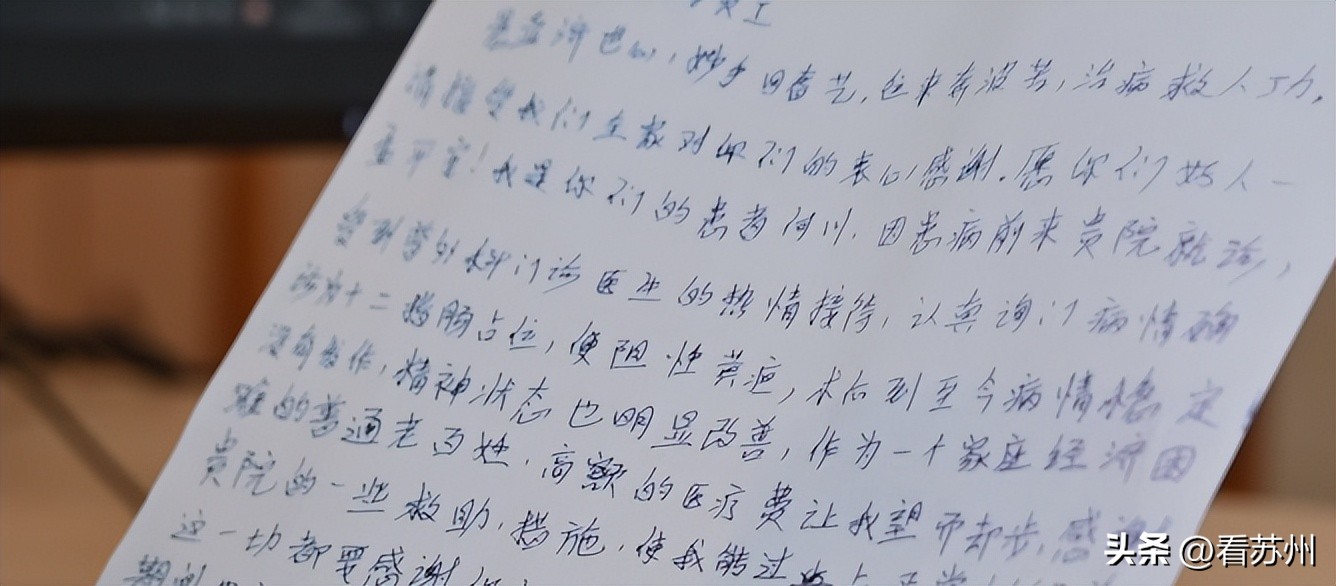 悬壶济世心，妙手回春艺，往来奔波苦，治病救人功，
请接受我们全家对你们的衷心感谢。愿你们好人一
生平安！我是你们的患者何川，因患病前来贵院就诊，
受到普外科门诊医生的热情接待，认真询问病情确
诊为十二指肠占位，梗阻性黄疸，术后到至今病情稳定
没有发作，精神状态也明显改善，作为一个家座经济困
难的普通老百姓，高额的医疗费让我望而却步，感谢
贵院的一些救助，措施，使我能过
这一切都要感谢
头条 @看苏州